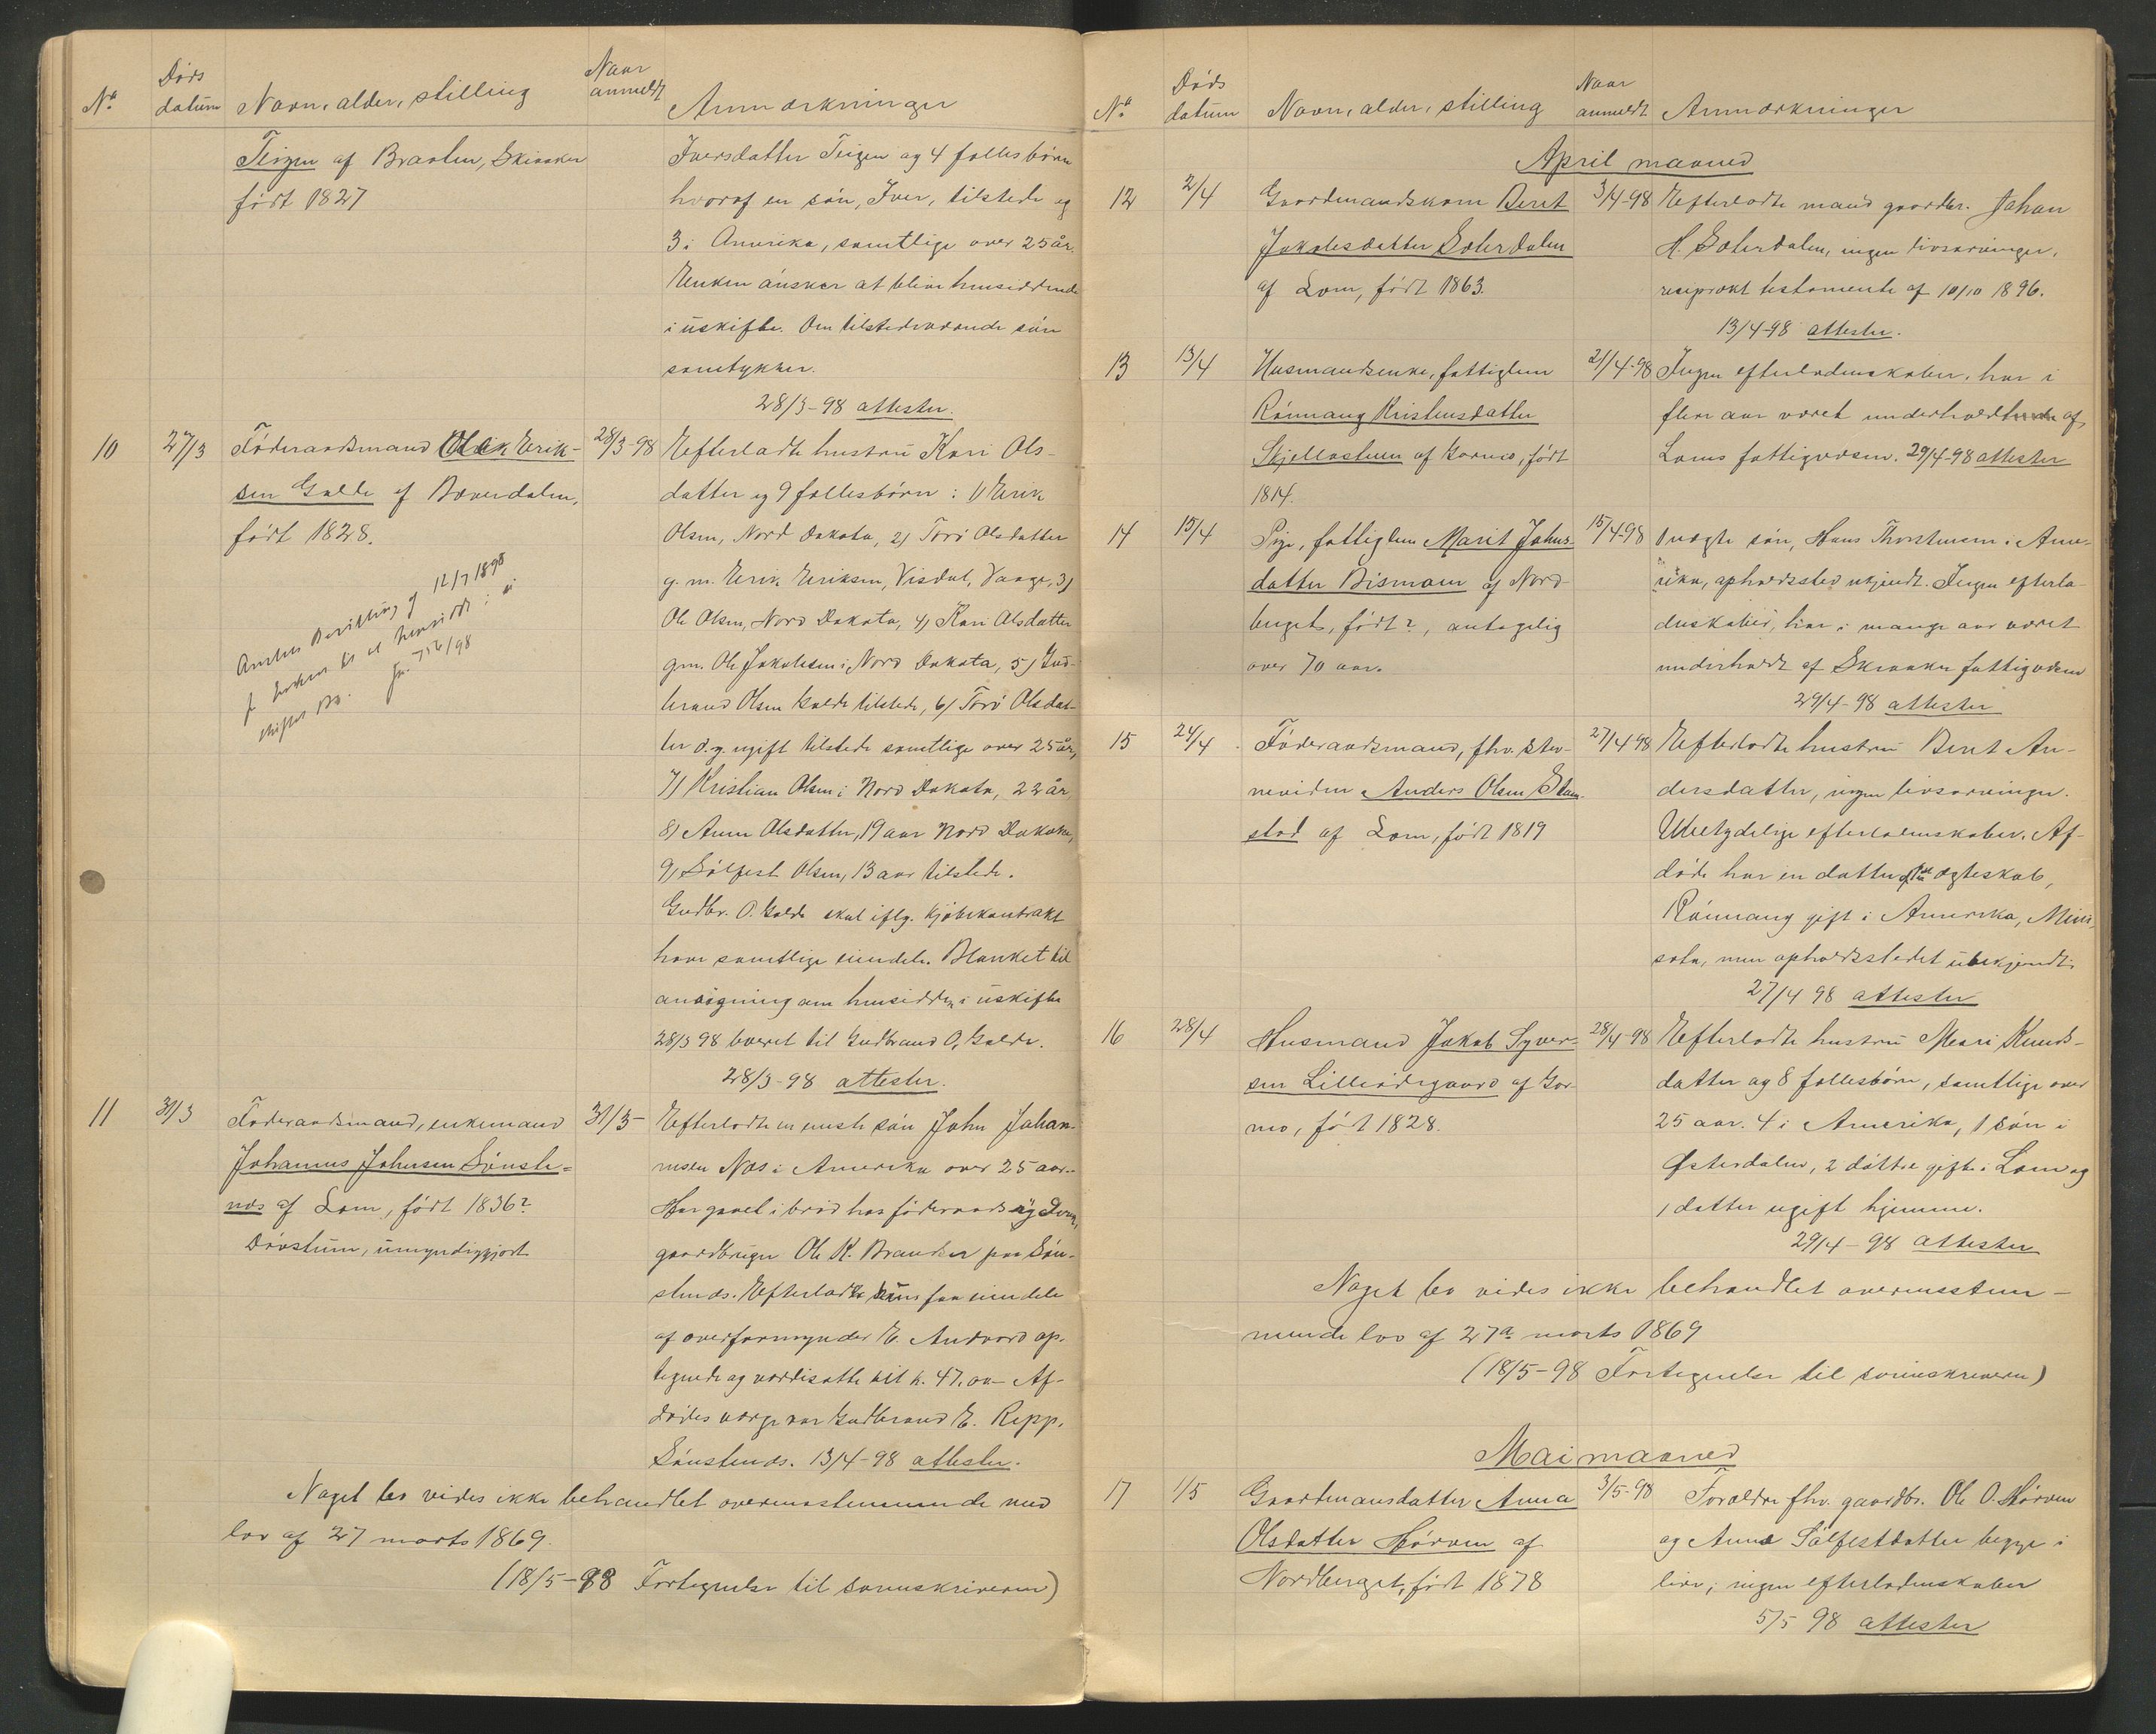 No
Døds
datum
Navn, alder, stilling
Naar
anmeldt
Anmærkninger
Teigen af Braaten, Skiaaker
født 1827
Iversdatter Teigen og 4 fællesbörn
hvoraf en sön, Iver, tilstede og
3 i Amerika, samtlige over 25 år.
Enken önsker at blive hensiddende
i uskifte. Den tilstedeværende sön
samtykker.
28/3-98 attester.
10
27/3
Föderaadsmand Ole Erik-
sen Galde af Bæverdalen,
født 1828.
28/3-98
Efterladte hustru Kari Ols-
datter og 9 fællesbörn: 1) Erik
Olsen, Nord Dakota, 2) Torö Olsdatter
g. m. Erik Eriksen, Visdal, Vaage, 3)
Ole Olsen, Nord Dakota, 4) Kari Olsdatter
g.m. Ole Jakobsen i Nord Dakota, 5) Gud-
brand Olsen Galde tilstede, 6) Torö Olsdat-
ter d.y. ugift tilstede samtlige over 25 år,
7) Kristian Olsen i Nord Dakota, 22 år,
8) Anne Olsdatter, 19 aar Nord Dakota,
9) Sölfest Olsen, 13 aar tilstede.
Gudbr. O. Galde skal iflg. kjöbekontrakt
have samtlige eiendele. Blanket til
ansögning om hensidden i uskifte
28/3 98 leveret til Gudbrand O. Galde.
28/3-98 attester.
Amtets Bevilling af 12/7 1898
f. enken til at hensidde i u-
skiftet Bo. Jn. 756/98
11
31/3
Føderaadsmand, enkemand
Johannes Johnsen Sönste-
næs af Lom, födt 1836?
Dövstum, umyndiggjort
31/3-
Efterladte en eneste sön John Johan-
nesen Næs i Amerika over 25 aar.
Har gaaet i bröd hos föderaadsyderen,
gaardbruger Ole K. Brandser paa Sön-
stenæs. Efterladte kuns faa eiendele
af overformynder E. Andvord op-
tegnede og værdisatte til k. 47.00 - Af-
dödes værge var Gudbrand E. Repp,
Sönstenæs. 13/4-98 attester.
Noget bo vides ikke behandlet overensstemmende med
lov af 27 marts 1869.
(18/5-98 Fortegnelse til sorenskriveren)
No
Döds
datum
Navn, alder, stilling
Naar
anmeldt
Anmærkninger
April maaned
12
2/4
Gaardmandskone Berit
Jakobsdatter Soleidalen
af Lom, født 1863.
3/4-98
Efterladte mand gaardbr. Johan
H. Soleidalen, ingen livsarvinger,
reciprokt testamente af 10/10 1896.
13/4-98 attester.
13
13/4
Husmandsenke, fattiglem
Rönnaug Kristensdatter
Skjellastuen af Garmo, født
1814.
21/4-98
Ingen efterladenskaber, har i
flere aar været underholdt af
Loms fattigvæsen. 29/4-98 attester
14
15/4
Pige, fattiglem Marit Johns-
datter Bismoen af Nord-
berget, født?, antagelig
over 70 aar.
15/4-98
Uægte sön, Hans Thorstensen i Ame-
rika, opholdssted ukjendt. Ingen efterla-
denskaber, har i mange aar været
underholdt af Skiaaker fattigvæsen
29/4-98 attester
15
24/4
Föderaadsmand, fhv. stev-
nevidne Anders Olsen Stam-
stad af Lom, født 1819
27/4 98
Efterladte hustru Berit An-
dersdatter, ingen livsarvinger.
Ubetydelige efterladenskaber. Af-
döde har en datter af 1ste ægteskab,
Rönnaug gift i Amerika, Minne-
sota, men opholdsstedet ubekjendt.
27/4 98 attester
16
28/4
Husmand Jakob Syver-
sen Lilleödegaard af Gar-
mo, født 1828.
28/4-98
Efterladte hustru Mari Knuds-
datter og 8 fællesbörn, samtlige over
25 aar. 4 i Amerika, 1 sön i
Østerdalen, 2 döttre gifte i Lom og
1 datter ugift hjemme.
29/4-98 attester
Noget bo vides ikke behandlet overensstem-
mende lov af 27de marts 1869
(18/5-98 Fortegnelse til sorenskriveren)
Mai maaned
17
1/5
Gaardmansdatter Anna
Olsdatter Hörven af
Nordberget, født 1878
3/5-98
Forældre fhv. gaardbr. Ole O. Hörven
og Anne Sölfestdatter begge i
live; ingen efterladenskaber
5/5 98 attester